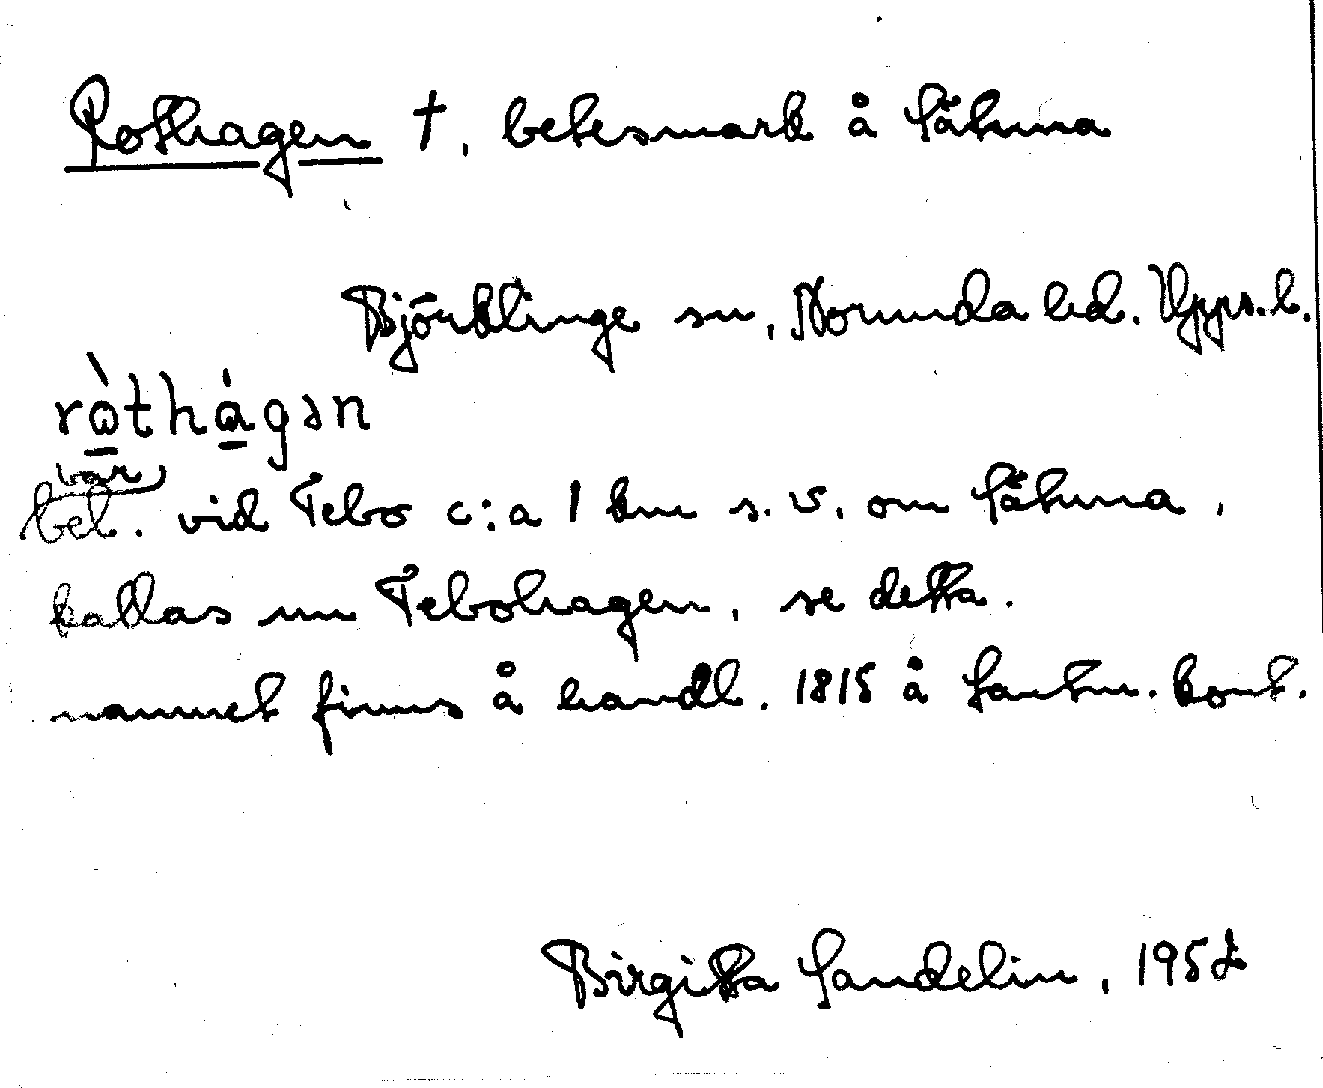 Rothagen †, betesmark å Sätuna
Björklinge sn, Norunda hd. Upps. l.
ròthágən
var
bel. vid Tebo c:a 1 km s. v. om Sätuna,
kallas nu Tebohagen, se detta.
namnet finns å handl. 1815 å Lantm. kont.
Birgitta Sandelin, 1952